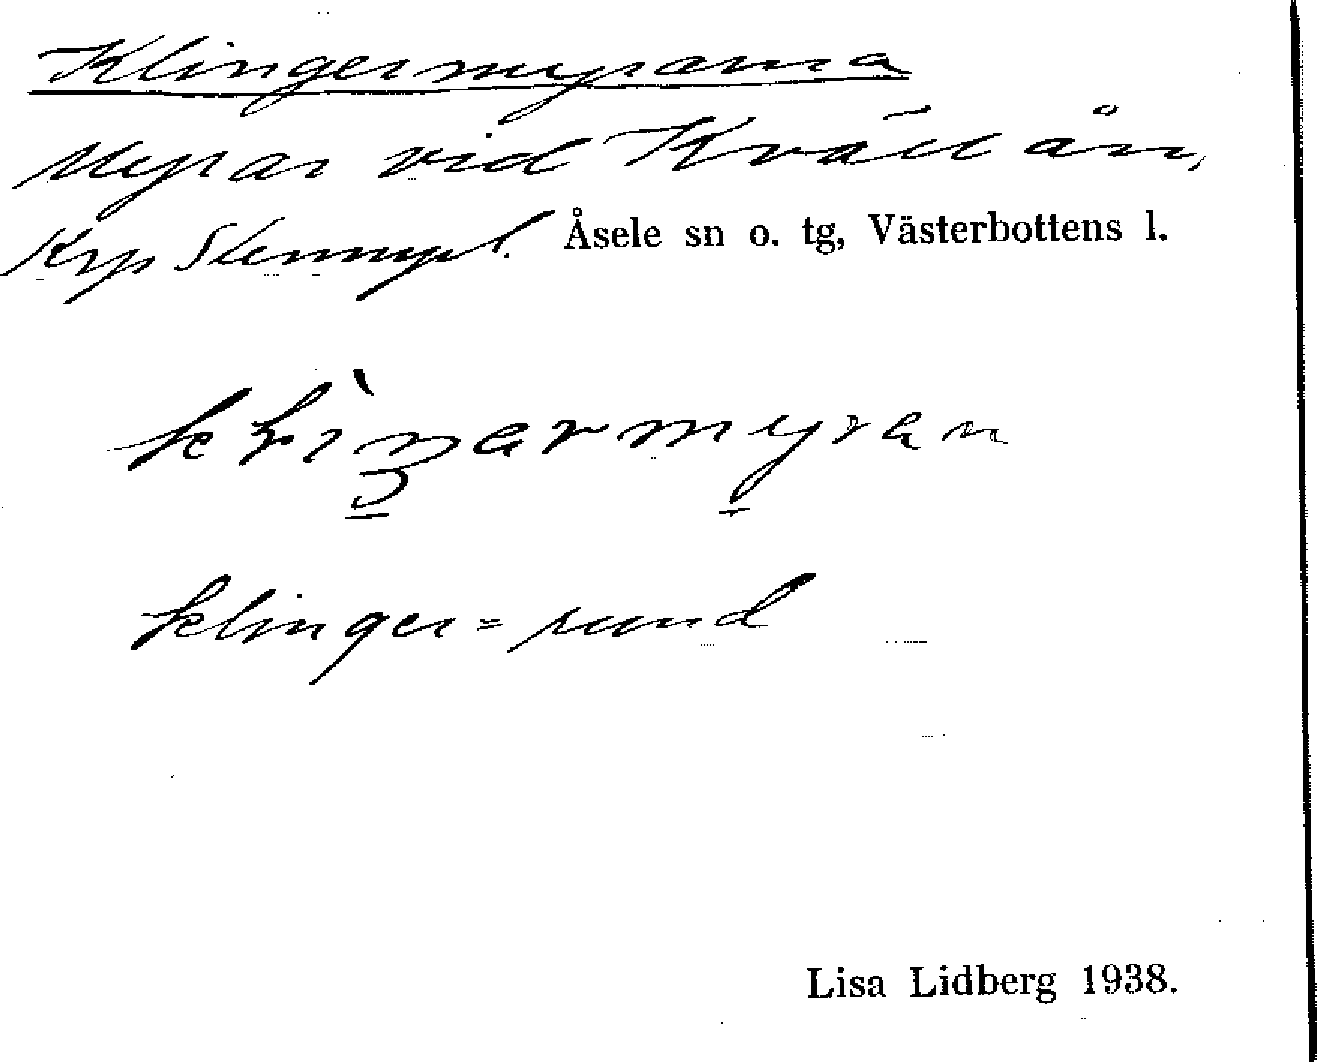 Klingermyrarna
Myrar vid Kvällån,
Krp Åsele sn o. tg, Västerbottens l.
klinger = rund
Lisa Lidberg 1938.